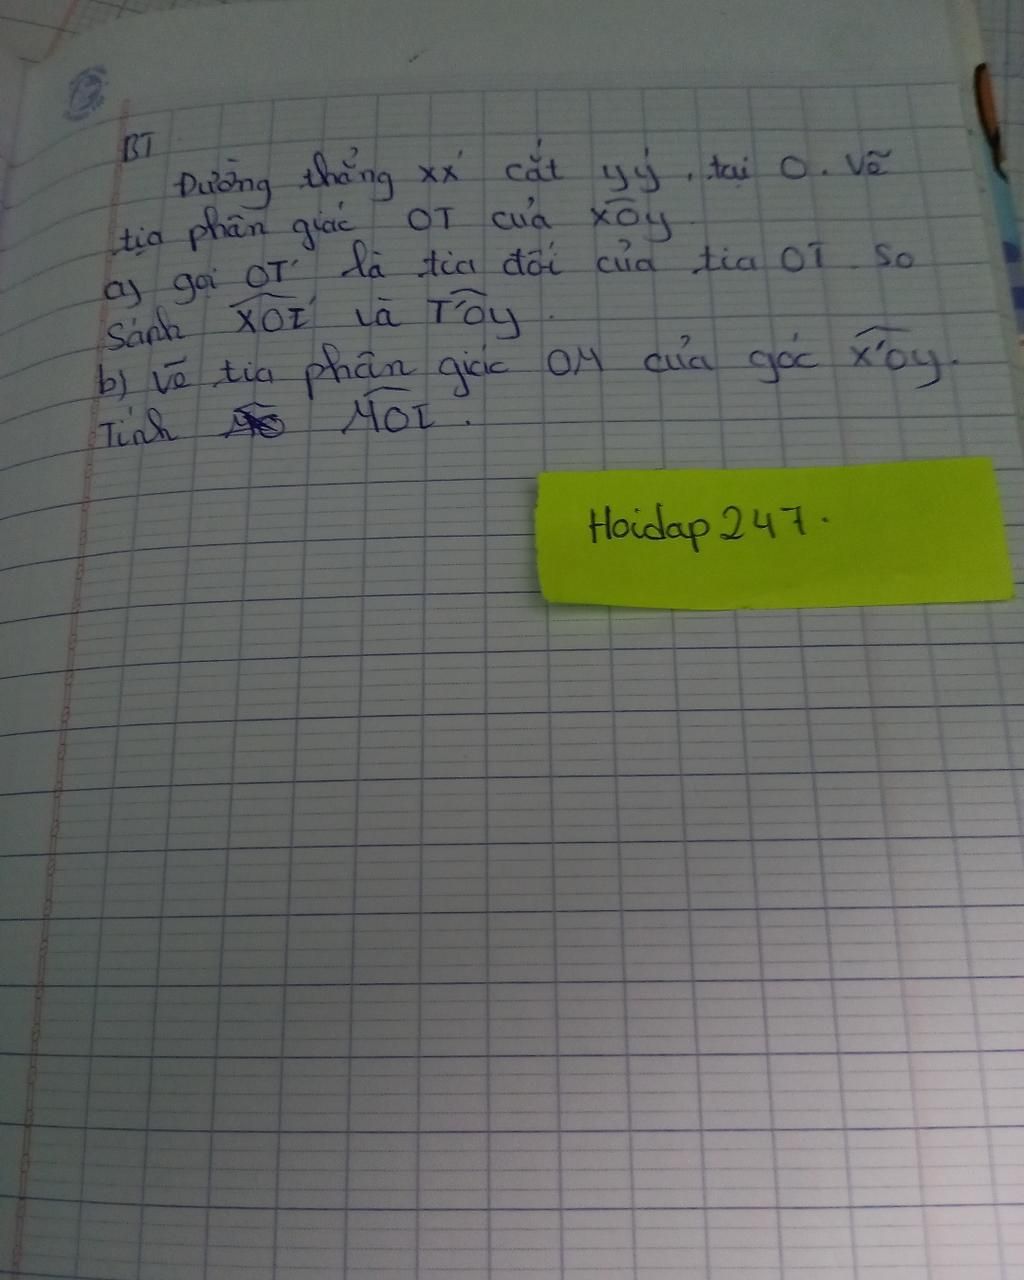 BT
Đường thẳng xx' cắt yy', tại O. Vẽ
tia phân giác OT của xOy
a) gọi OT' là tia đối của tia OT. So
sánh xOT' và T'Oy.
b) Vẽ tia phân giác OM của góc x'Oy.
Tính MOT.
Hoidap247.